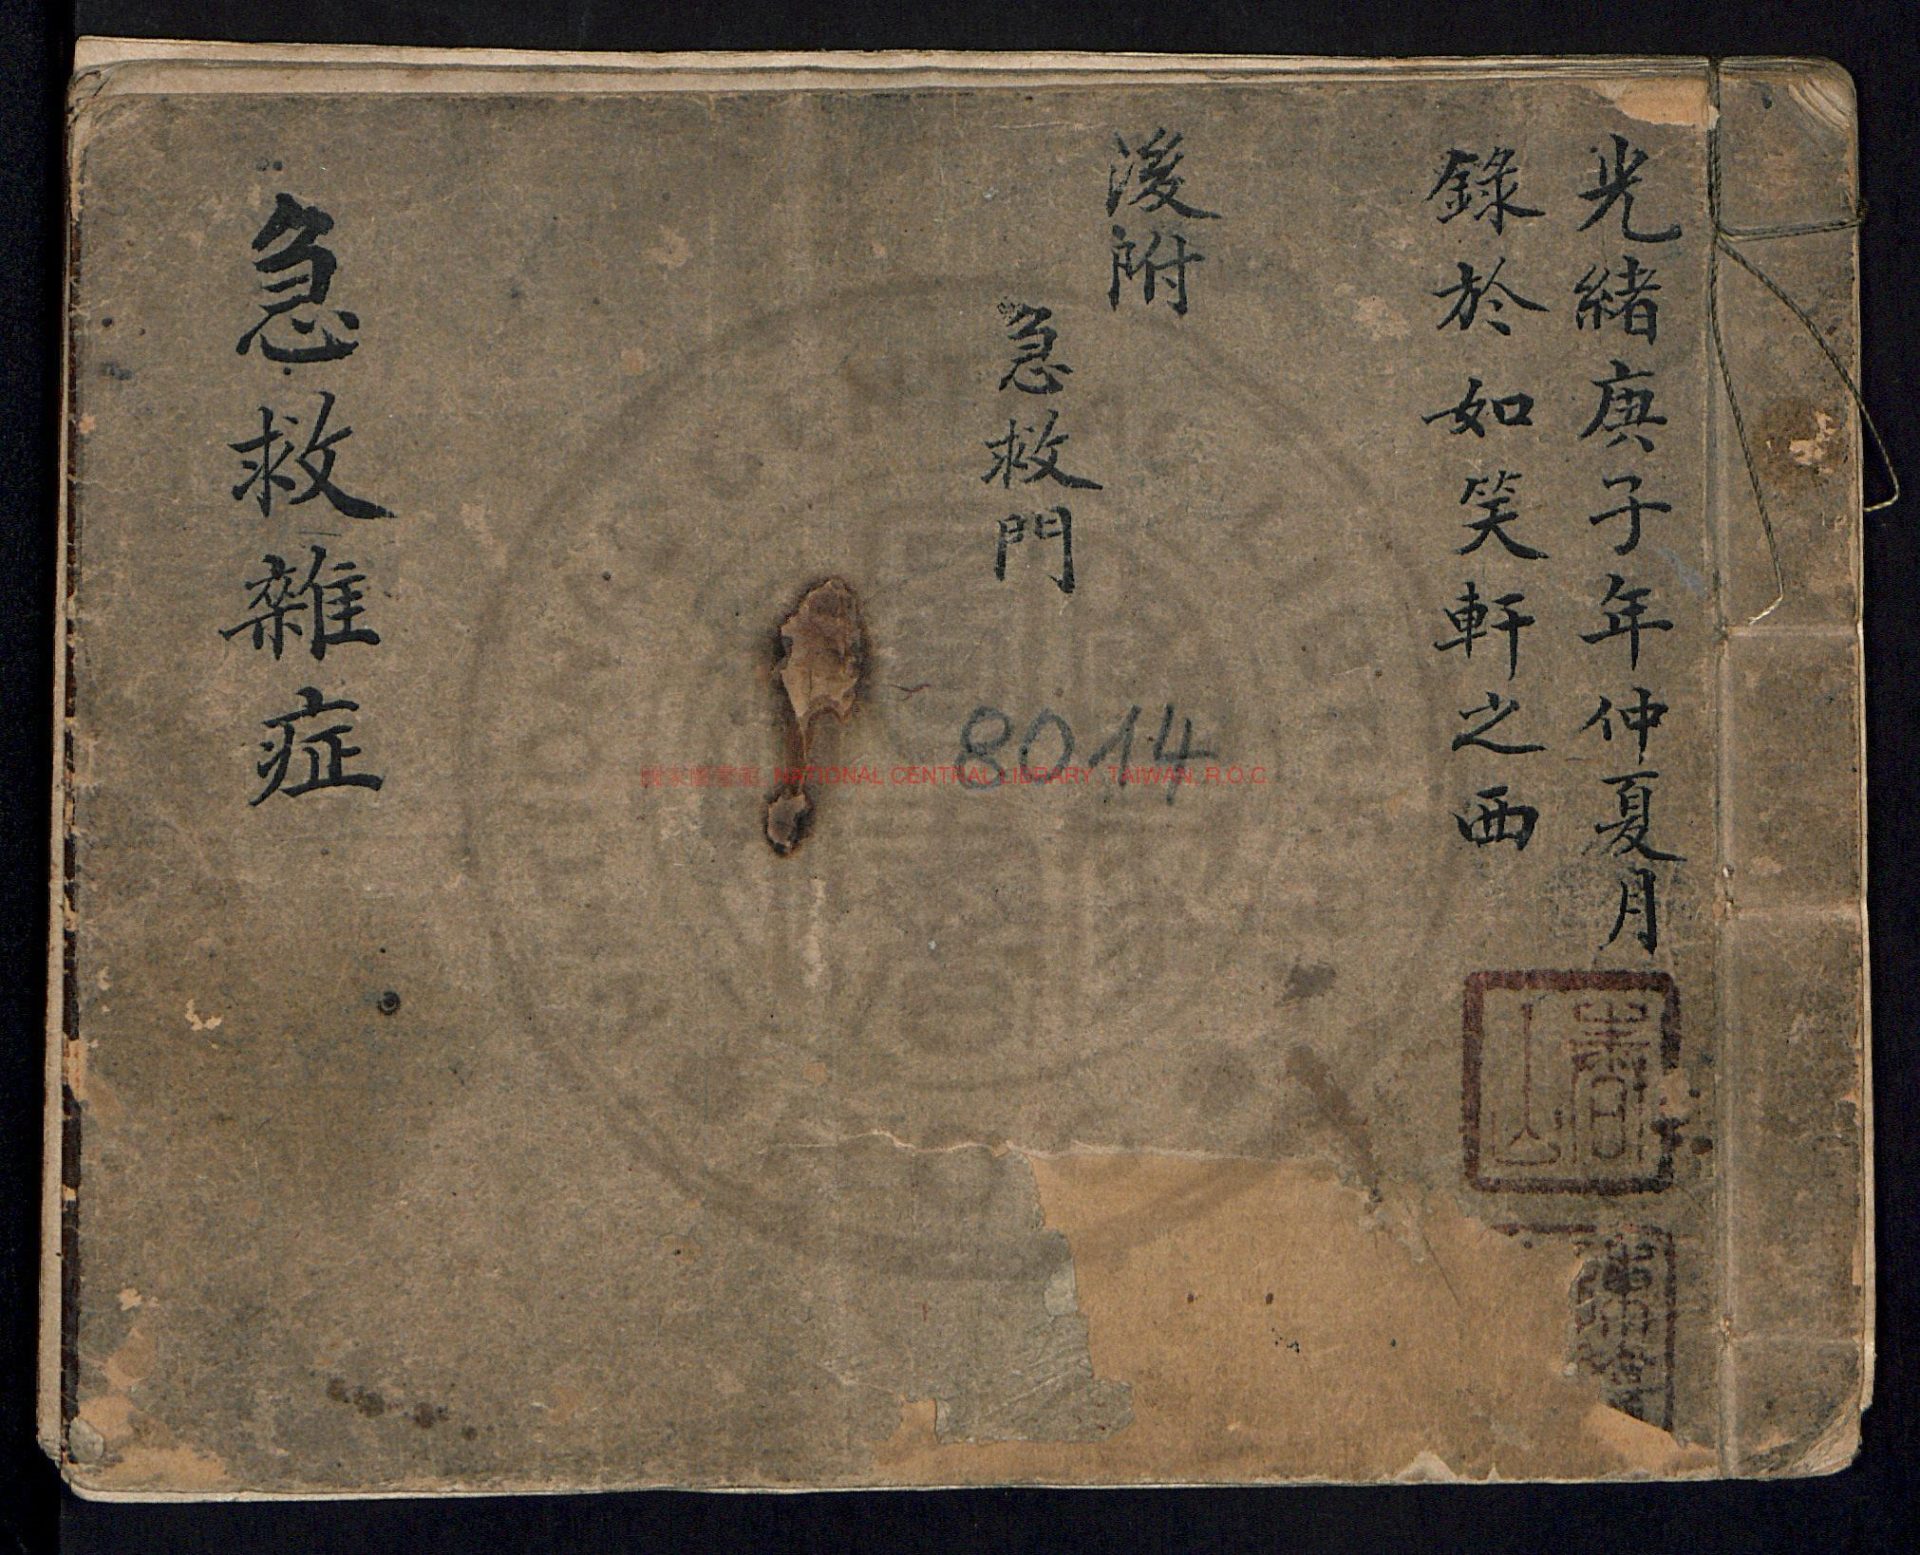 光緒庚子年仲夏月
錄於如笑軒之西
後附
急救門
急救雜症
8014
國家圖書館 NATIONAL CENTRAL LIBRARY, TAIWAN, R.O.C